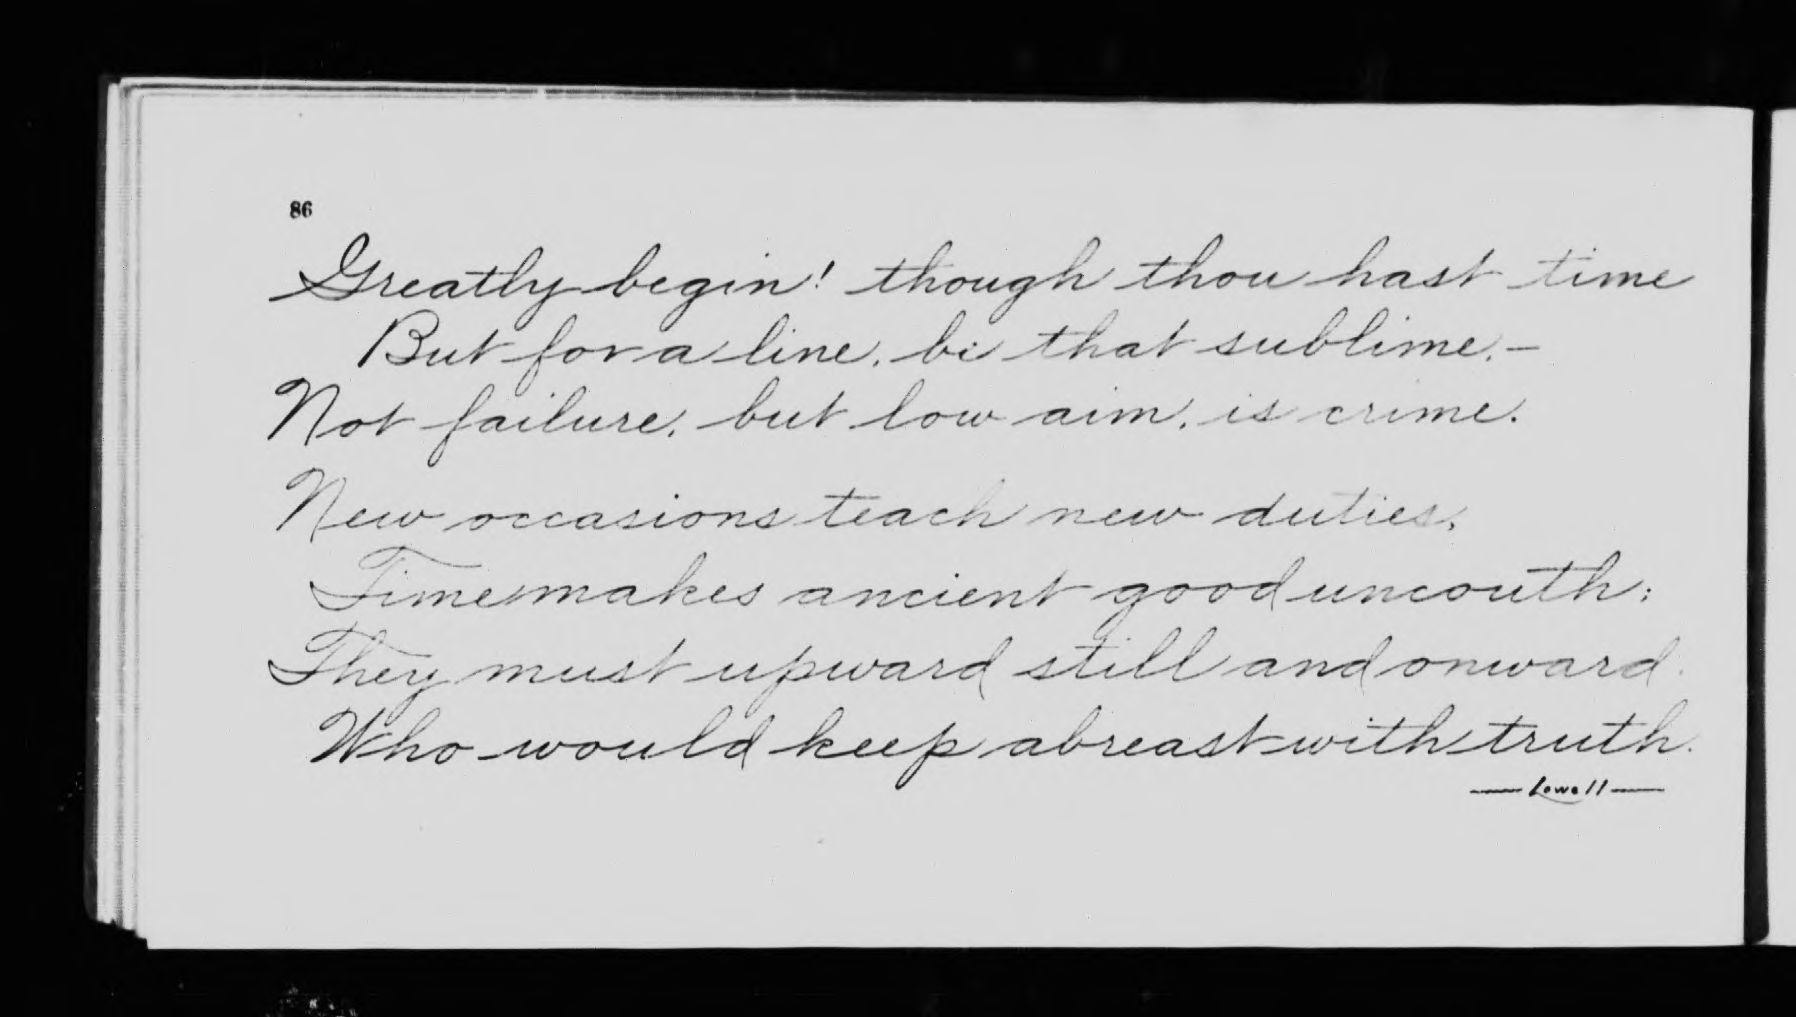 86
Greatly begin! though thou hast time
But for a line, be that sublime,—
Not failure, but low aim, is crime.
New occasions teach new duties,
Time makes ancient good uncouth;
They must upward still and onward.
Who would keep abreast with truth.
— Lowell —